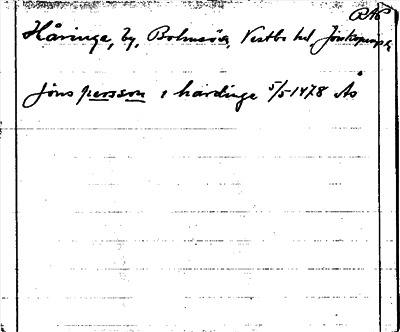 RAP
Håringe, by, Bolmsö sn, Västbo hd, Jönköpings l.
Jöns persson i hårdinge 5/5 1478 Ås